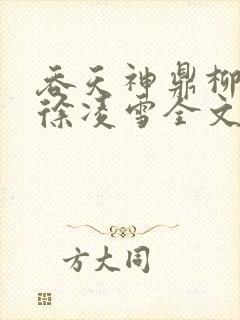 吞天神鼎柳
徐凌雪全文
方大同